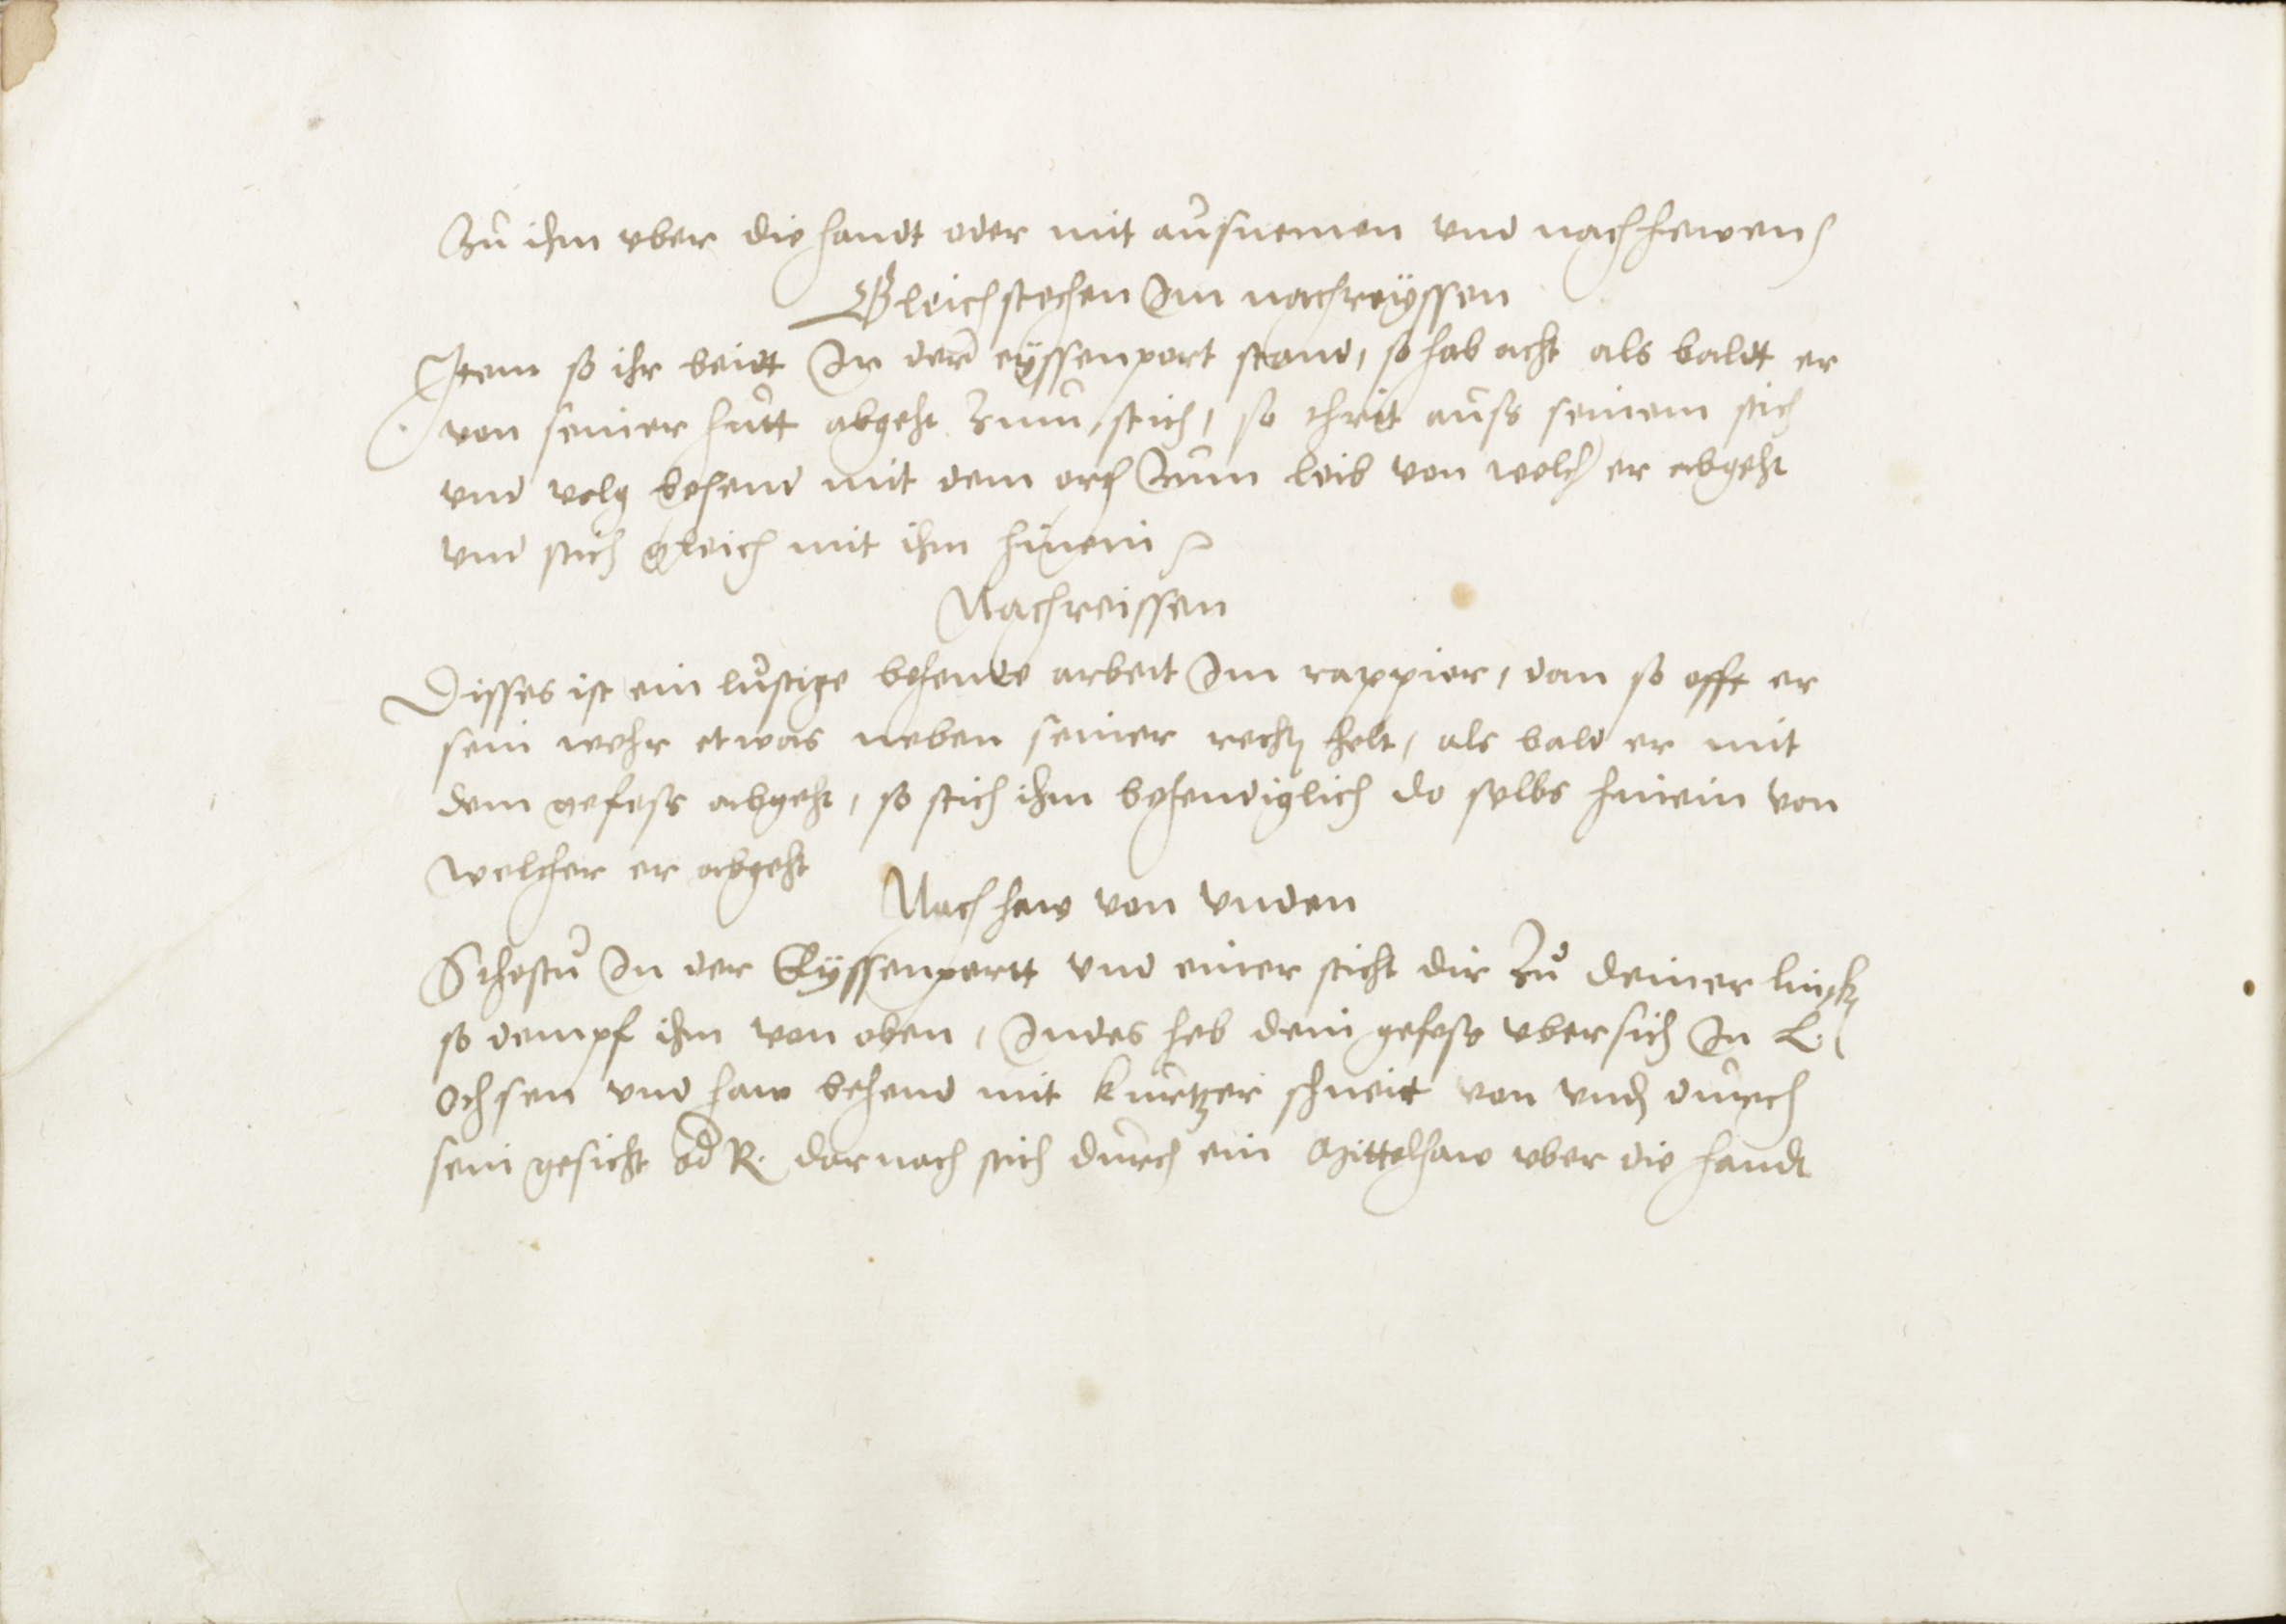 Zu ihm vber die handt oder mit ausnemen vnd nachhewen
Gleichstechen Im nachreÿssen
Item so ihr beidt In der eÿssenport stand, so hab acht als baldt er
von seiner hutt abgeht zum stich, so thrit auss seinem stich
vnd volg behend mit dem orth Zum leib von welch er abgeht
vnd stich gleich mit ihm hinein
Nachreissen
Disses ist ein lustige behende arbeit Im rappier, dan so offt er
sein wehr etwas neben seiner recht helt, als bald er mit
dem gefess abgeht, so stich ihm behendiglich do selbs hinein von
welcher er abgeht
Nachhaw von vnden
Sthestu In der Eÿssenportt vnd einer sticht dir Zu deiner linck
so dempf ihm von oben, Indes heb dein gefess vbersich In L.
Ochsen vnd haw behend mit kurtzer schneit von vnd durch
sein gesicht od R. darnach stich durch ein Mittelhaw vber die handt